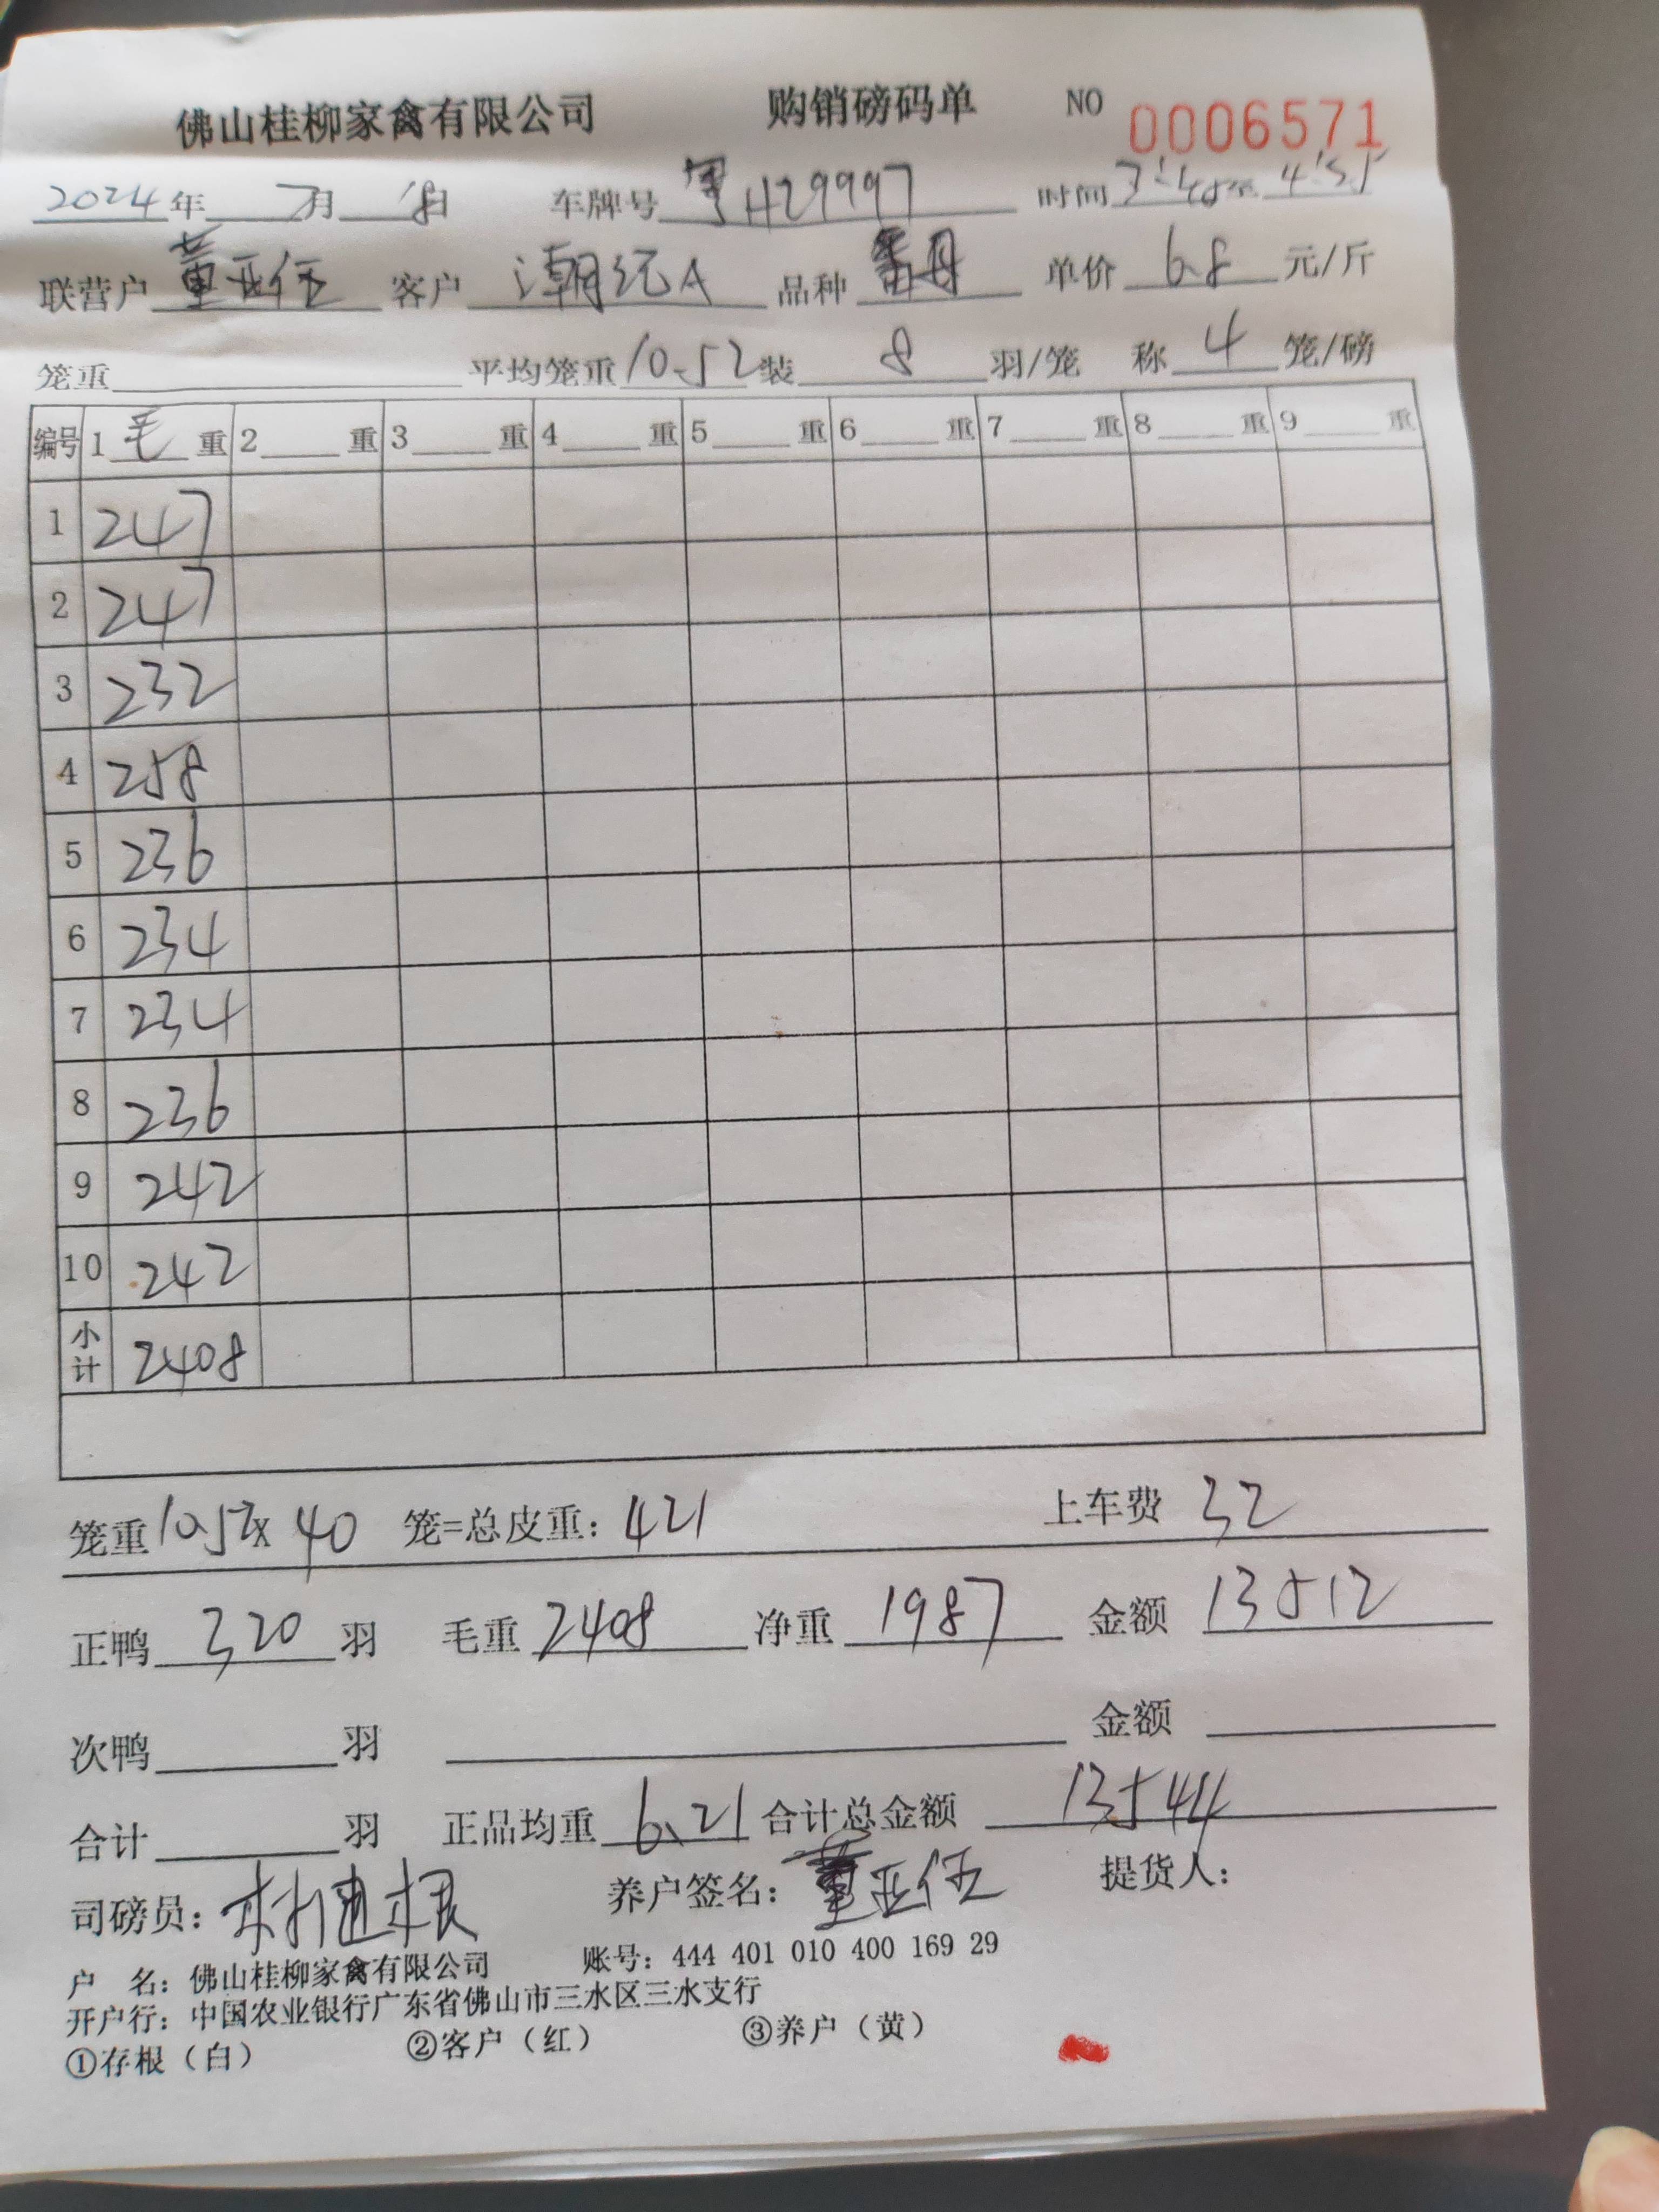 佛山桂柳家禽有限公司 购销磅码单 NO 0006571
2024年 7月 18日 车牌号 粤H29997 时间 至 4:51
联营户 董亚伍 客户 潮纪A 品种 番母 单价 6.8 元/斤
笼重 平均笼重 10.52 装 8 羽/笼 称 4 笼/磅
编号 1 毛 重 2 重 3 重 4 重 5 重 6 重 7 重 8 重 9 重
1 247
2 247
3 232
4 258
5 236
6 234
7 234
8 236
9 242
10 242
小计 2408
笼重 10.52x 40 笼=总皮重: 421 上车费 32
正鸭 320 羽 毛重 2408 净重 1987 金额 13512
次鸭 羽 金额
合计 羽 正品均重 6.21 合计总金额 13544
司磅员: 林建根 养户签名: 董亚伍 提货人:
户 名: 佛山桂柳家禽有限公司 账号: 444 401 010 400 169 29
开户行: 中国农业银行广东省佛山市三水区三水支行
①存根（白） ②客户（红） ③养户（黄）